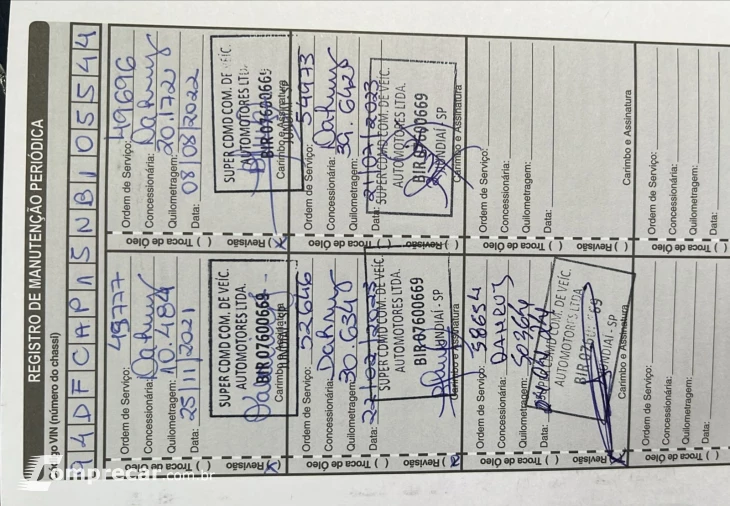 REGISTRO DE MANUTENÇÃO PERIÓDICA
Código VIN (número do chassi)
A 4 D F C A P 1 5 N B 1 0 5 5 4 4
Revisão ( ) Troca de Óleo ( )
Ordem de Serviço: 49777
Concessionária: Dahruj
Quilometragem: 10.484
Data: 25/11/2021
SUPER COMD COM. DE VEÍC.
AUTOMOTORES LTDA.
BIR 07600669
Carimbo e Assinatura
Revisão ( ) Troca de Óleo ( )
Ordem de Serviço: 49696
Concessionária: Dahruj
Quilometragem: 20.172
Data: 08/08/2022
SUPER COMD COM. DE VEÍC.
AUTOMOTORES LTDA.
BIR 07600669
Carimbo e Assinatura
Revisão ( ) Troca de Óleo ( )
Ordem de Serviço: 52646
Concessionária: Dahruj
Quilometragem: 30.634
Data: 27/02/2023
SUPER COMD COM. DE VEÍC.
AUTOMOTORES LTDA.
BIR 07600669
JUNDIAÍ - SP
Carimbo e Assinatura
Revisão ( ) Troca de Óleo ( )
Ordem de Serviço: 54973
Concessionária: Dahruj
Quilometragem: 39.642
Data: 21/07/2023
SUPER COMD COM. DE VEÍC.
AUTOMOTORES LTDA.
BIR 07600669
JUNDIAÍ - SP
Carimbo e Assinatura
Revisão ( ) Troca de Óleo ( )
Ordem de Serviço: 58654
Concessionária: DAHRUJ
Quilometragem: 50364
Data:
SUPER COMD COM. DE VEÍC.
AUTOMOTORES LTDA.
BIR 07600669
JUNDIAÍ - SP
Carimbo e Assinatura
Revisão ( ) Troca de Óleo ( )
Ordem de Serviço:
Concessionária:
Quilometragem:
Data:
Carimbo e Assinatura
Troca de Óleo ( )
Ordem de Serviço:
Concessionária:
Quilometragem:
Data:
Troca de Óleo ( )
Ordem de Serviço:
Concessionária:
Quilometragem:
Data:
comprecar.com.br